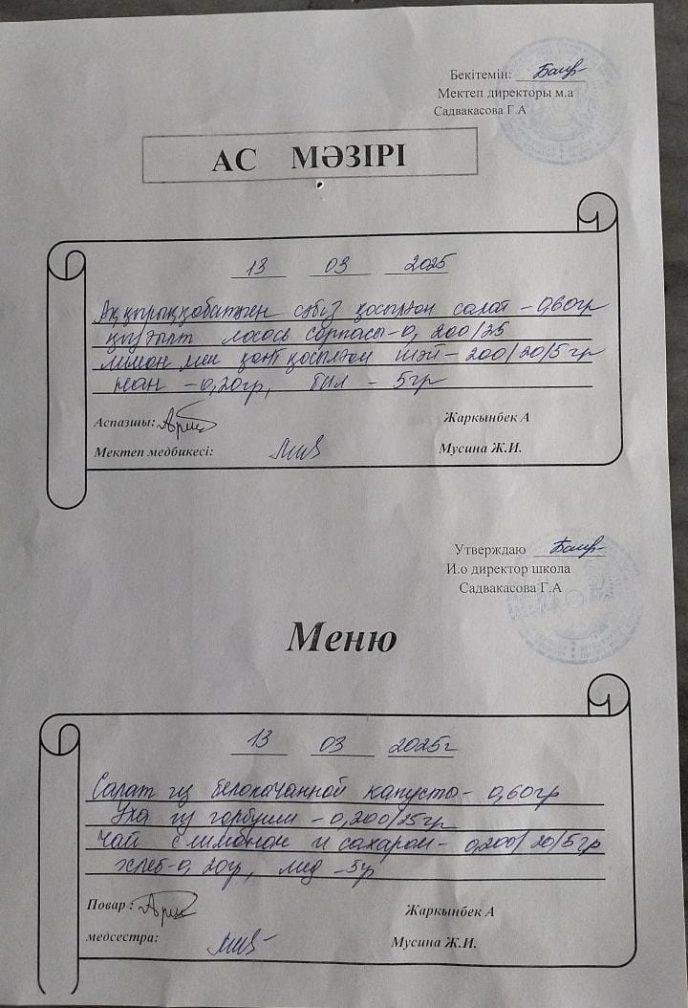 Бекітемін:
Мектеп директоры м.а
Садвакасова Г.А
АС МӘЗІРІ
13 03 2025
Аққырыққабаттен сәбіз қосылған салат - 0,60гр
лосось сорпасы - 0, 200/25
лимон мен қант қосылған шәй - 200/20/5гр
нан - 0,20гр, бал - 5гр
Аспазшы: Жаркынбек А
Мектеп медбикесі: Мусина Ж.И.
Утверждаю
И.о директор школа
Садвакасова Г.А
Меню
13 03 2025г
Салат из белокачанной капусты - 0,60гр
Уха из горбуши - 0,200/25гр
Чай с лимоном и сахаром - 0,200/20/5гр
хлеб - 0,20гр, мед - 5гр
Повар : Жаркынбек А
медсестра: Мусина Ж.И.